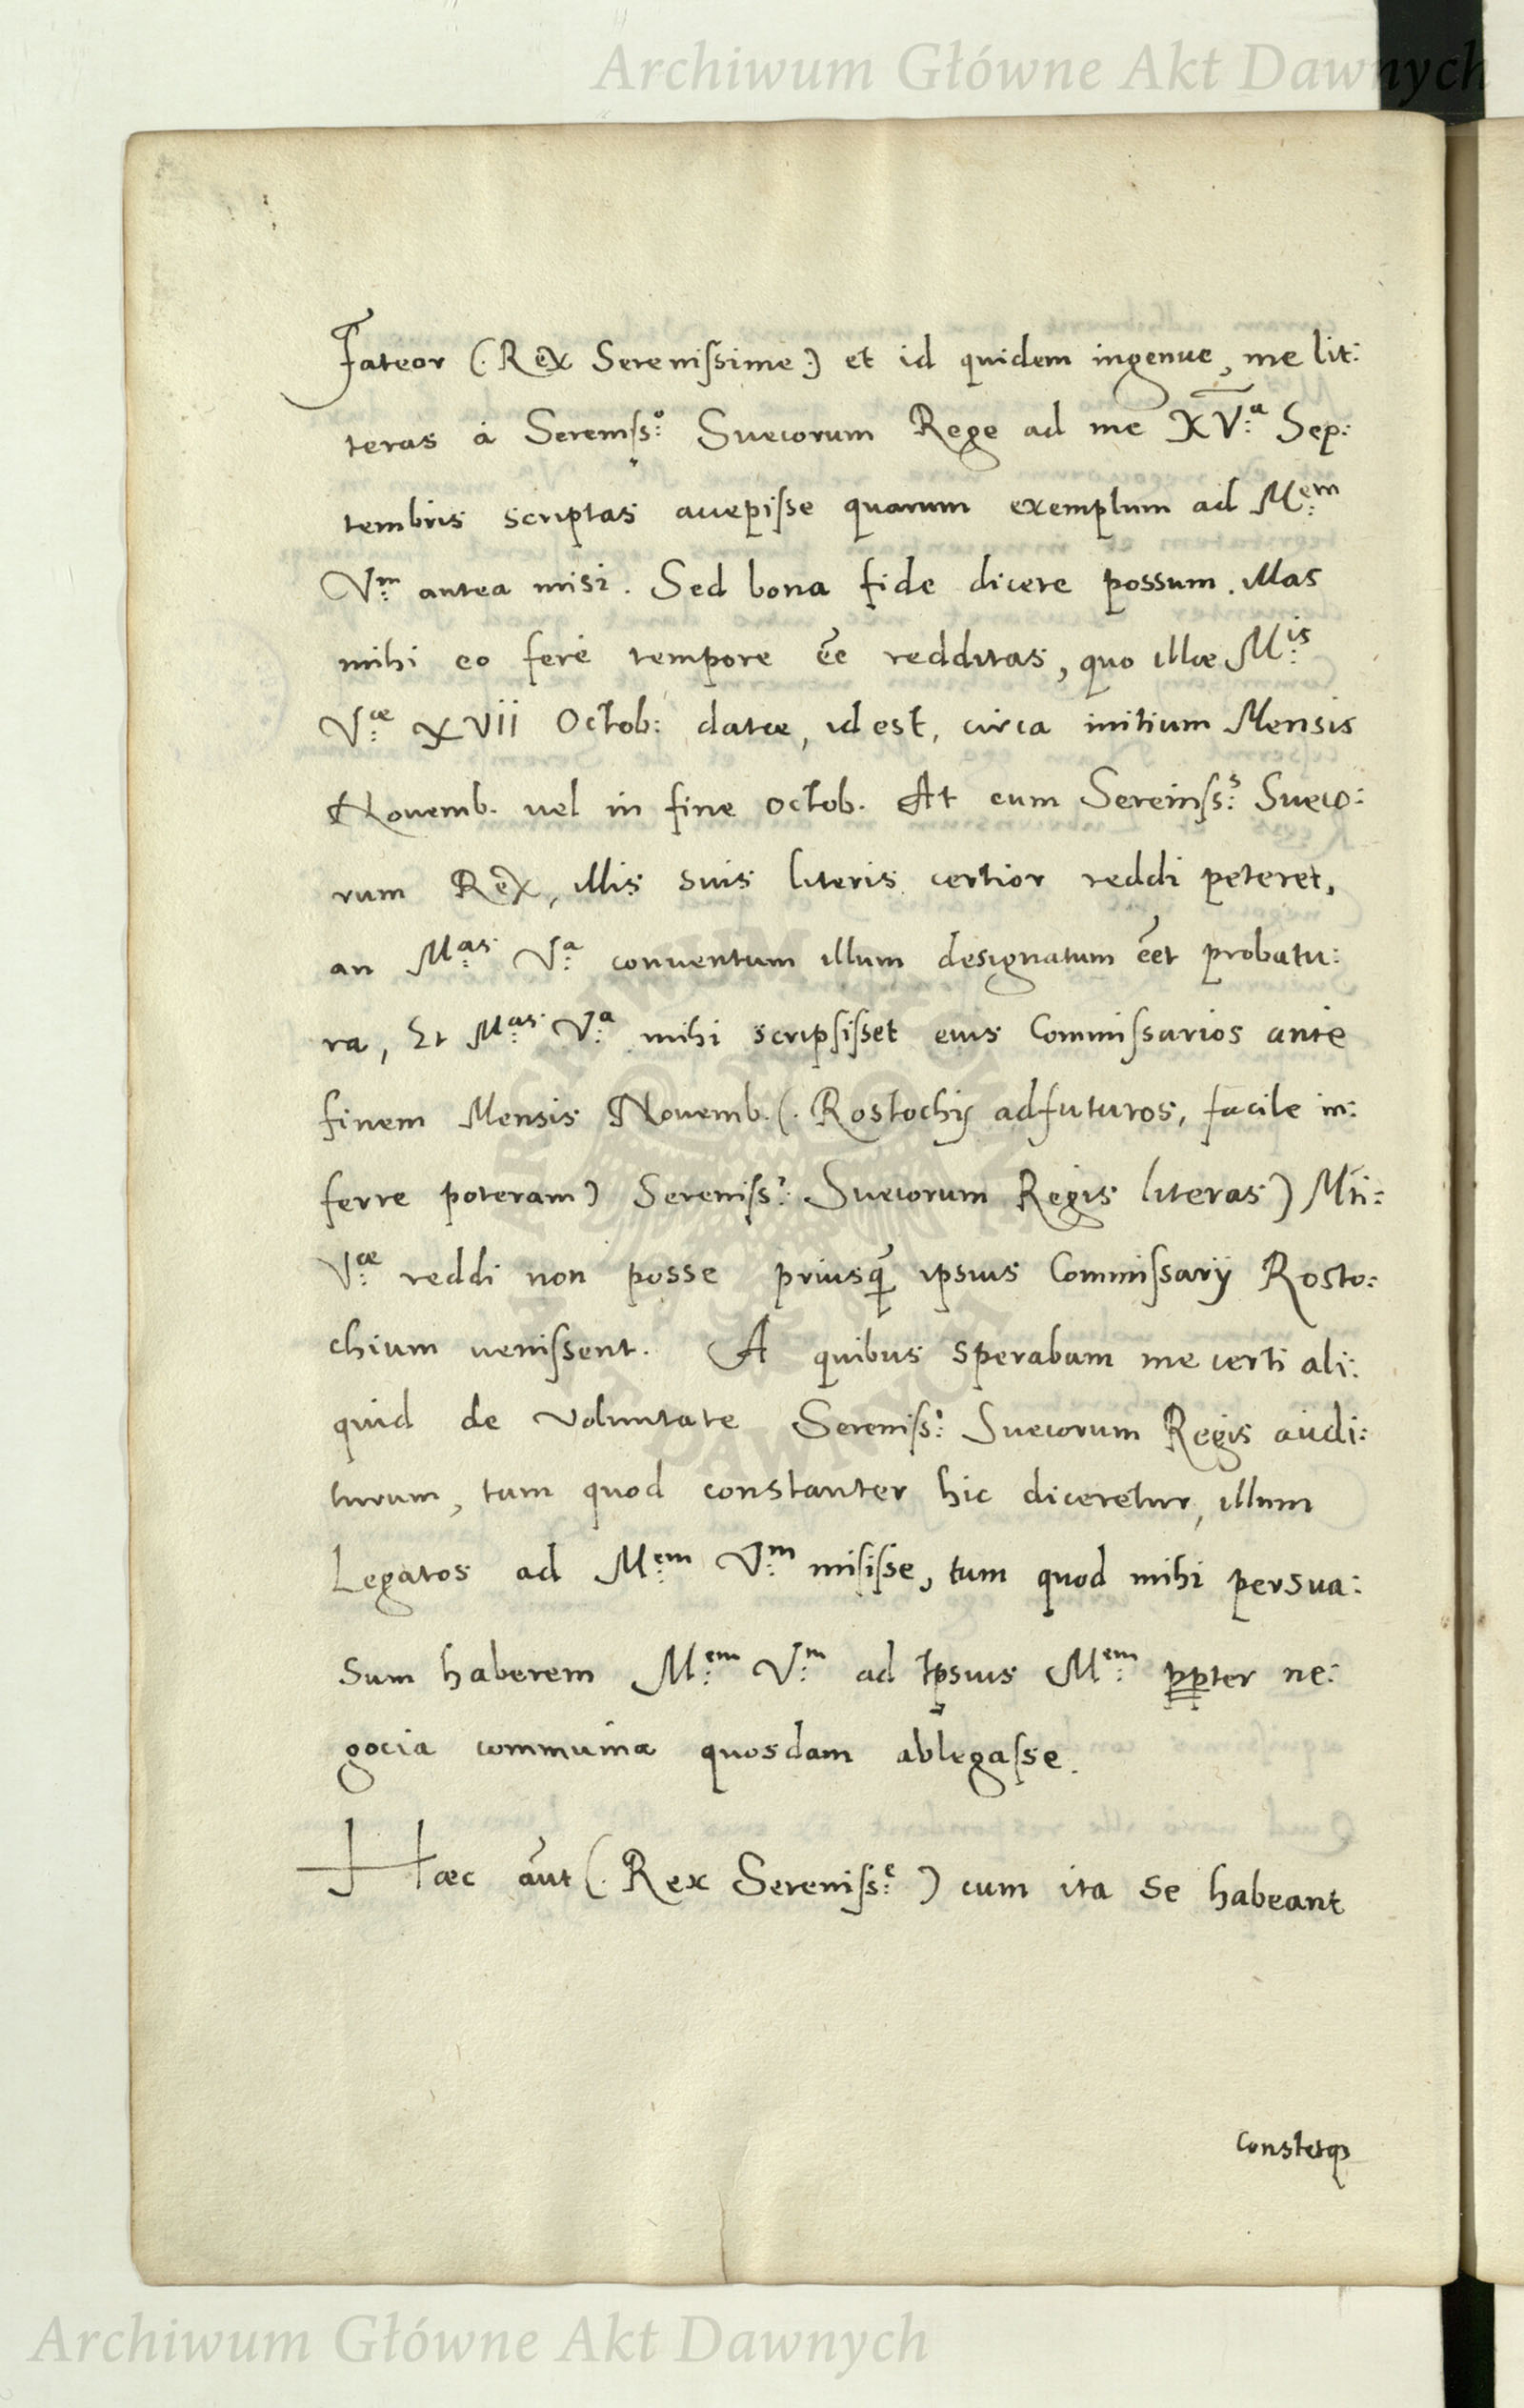 Archiwum Główne Akt Dawnych
Fateor (. Rex Serenissime.) et id quidem ingenue, me lit:
teras à Sereniss:o Suecorum Rege ad me XV:a Sep:
tembris scriptas accepisse quarum exemplum ad M:em
V:m antea misi. Sed bona fide dicere possum. illas
mihi eo ferè tempore ēe redditas, quo illæ M:is
V:æ XVII Octob: datæ, id est, circa initium Mensis
Novemb. vel in fine Octob. At cum Sereniss:s Sueco:
rum Rex, illis suis literis certior reddi peteret,
an M:as V:a conventum illum designatum ēet probatu:
ra, Et M:as V:a mihi scripsisset eius Commissarios ante
finem Mensis Novemb. (. Rostochij adfuturos, facile in:
ferre poteram) Sereniss:i Suecorum Regis literas) Mti:
V:æ reddi non posse priusq̄ ipsius Commissarij Rosto:
chium venissent. A quibus sperabam me certi ali:
quid de voluntate Sereniss:i Suecorum Regis audi:
turum, tum quod constanter hic diceretur, illum
Legatos ad M:em V:m misisse, tum quod mihi persua:
sum haberem M:em V:m ad Ipsius M:em ꝓpter ne:
gocia communia quosdam ablegasse.
Hæc aūt (. Rex Sereniss:e ) cum ita se habeant
constetq
Archiwum Główne Akt Dawnych